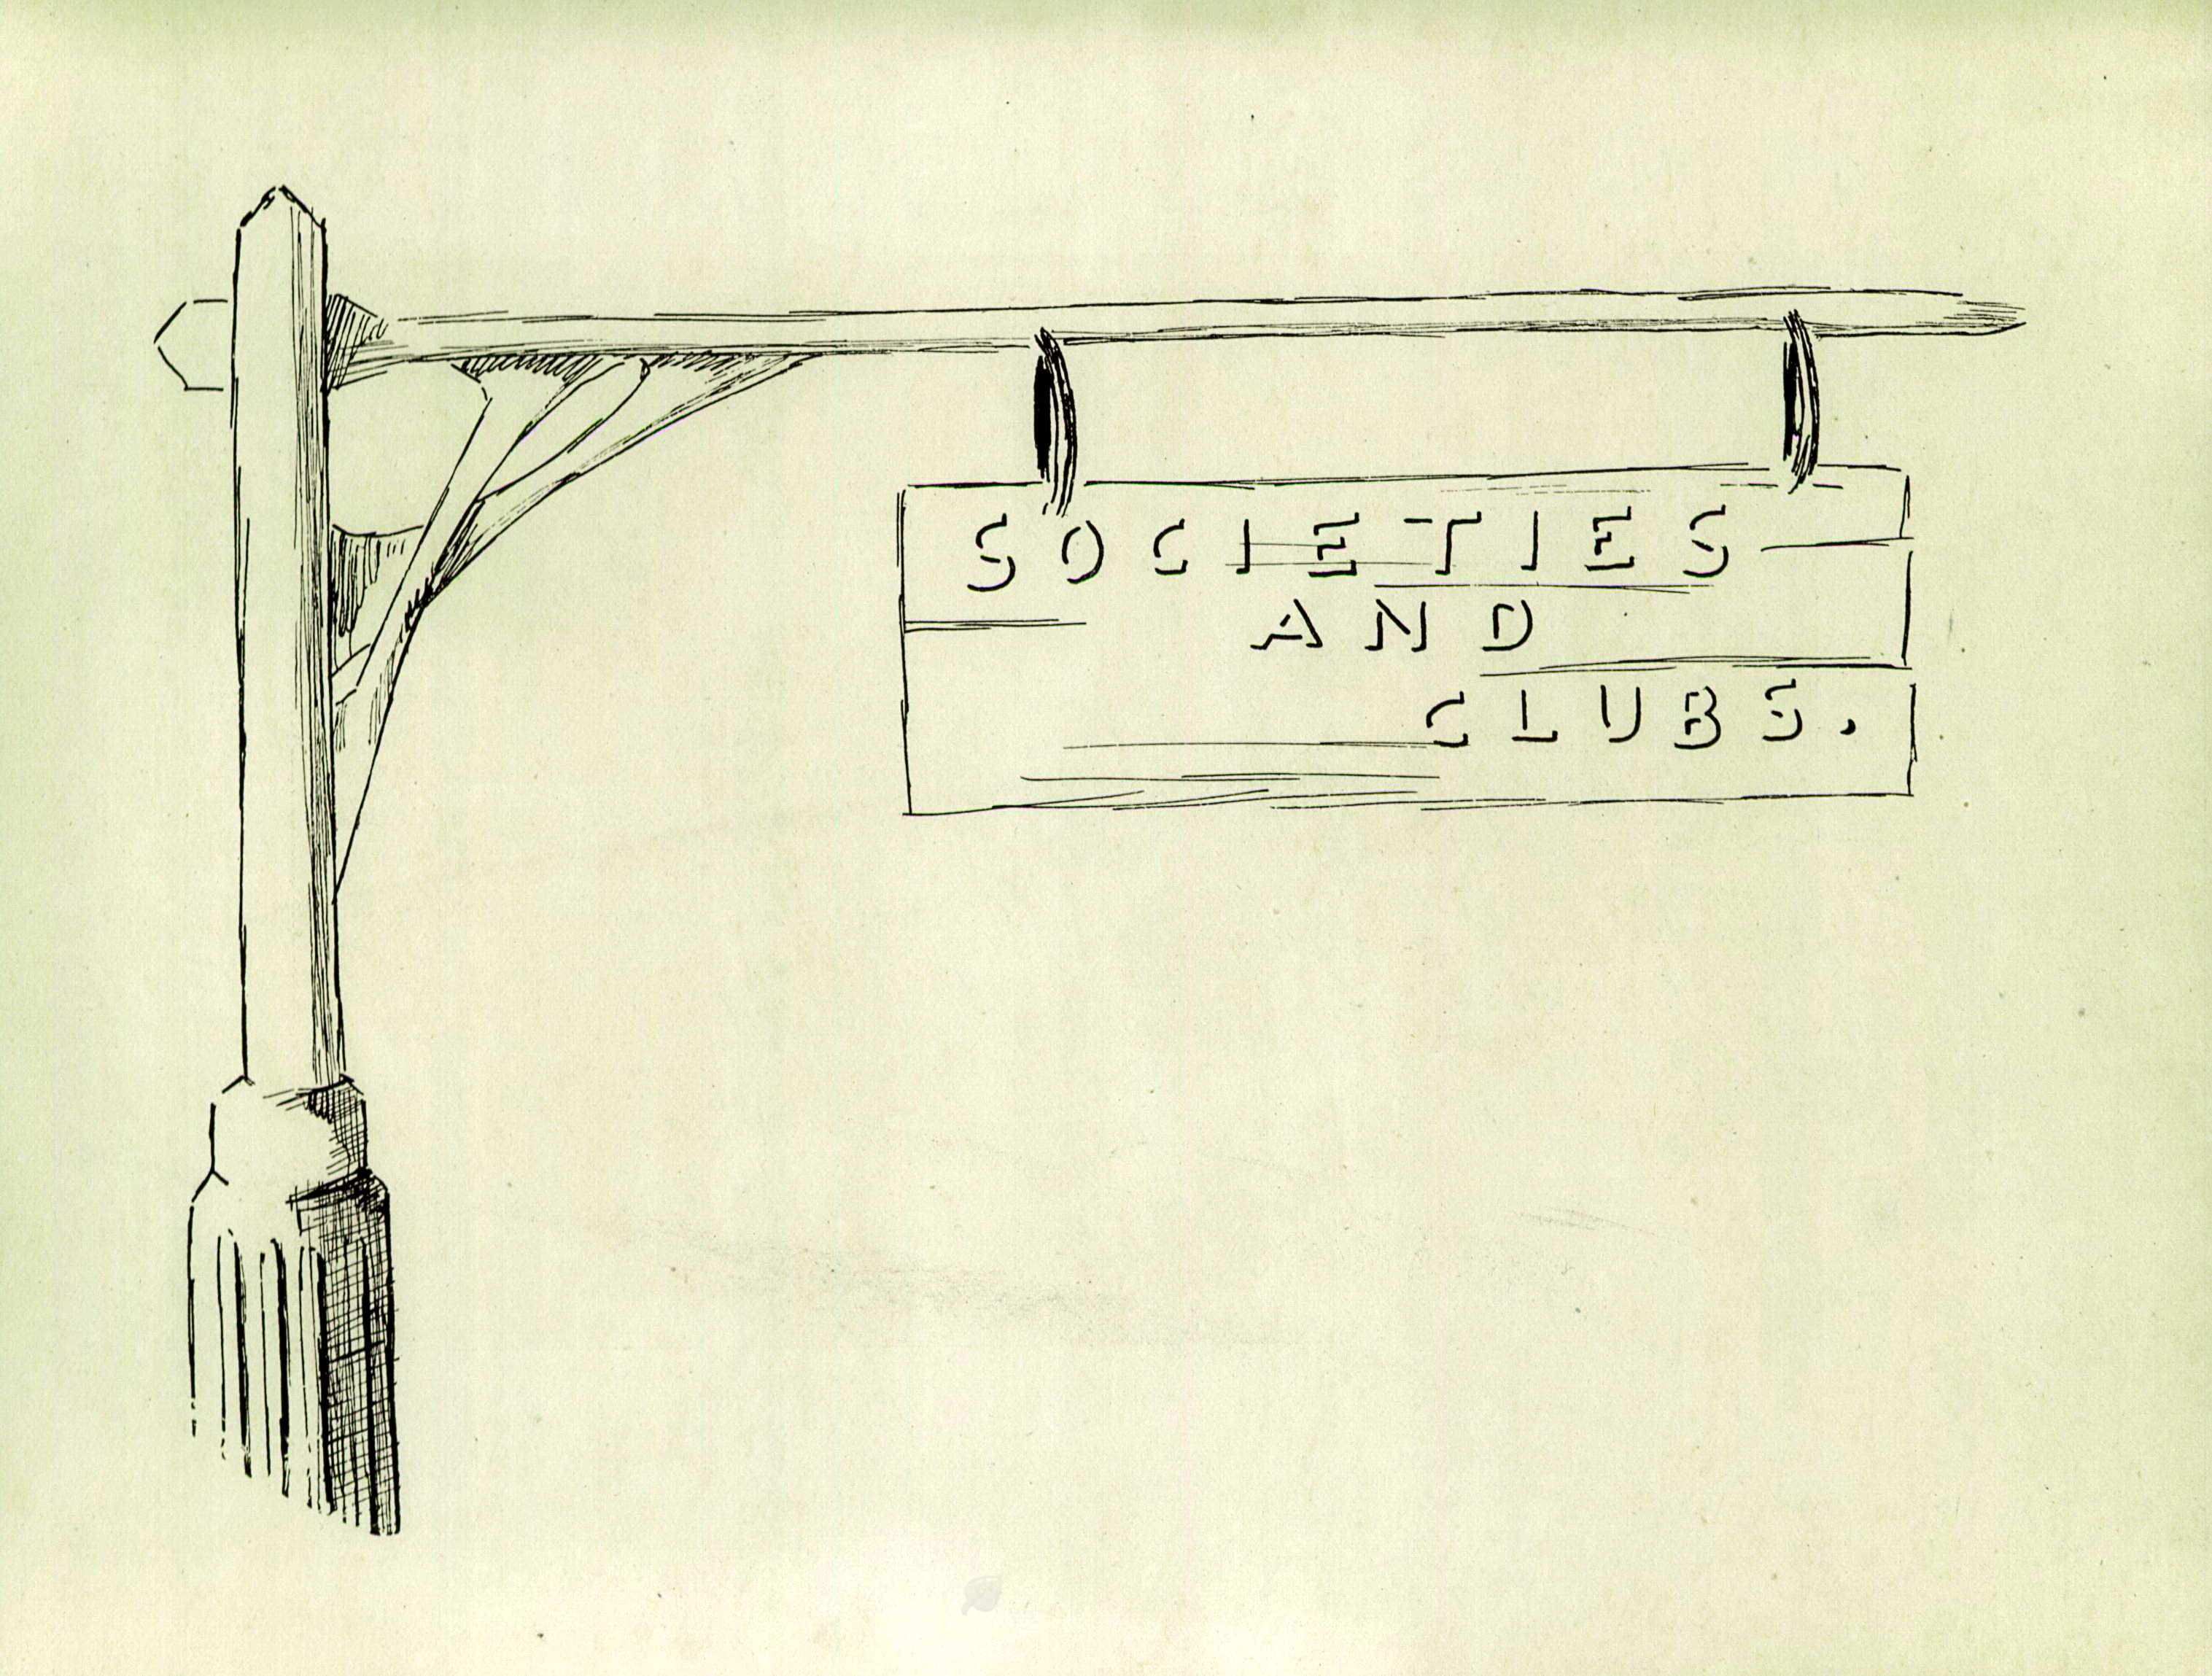 SOCIETIES
AND
CLUBS.